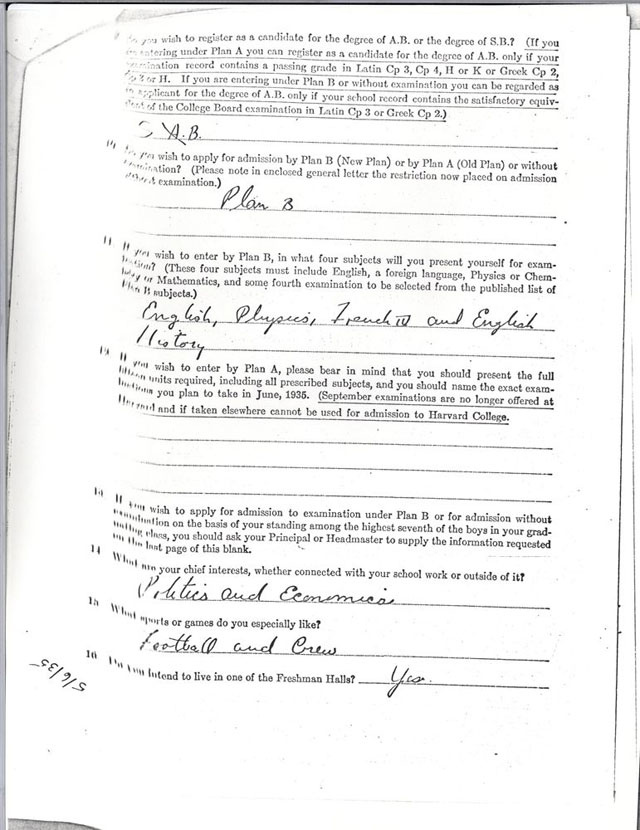 you wish to register as a candidate for the degree of A.B. or the degree of S.B.? (If you
entering under Plan A you can register as a candidate for the degree of A.B. only if your
examination record contains a passing grade in Latin Cp 3, Cp 4, H or K or Greek Cp 2,
or H. If you are entering under Plan B or without examination you can be regarded as
applicant for the degree of A.B. only if your school record contains the satisfactory equiv-
of the College Board examination in Latin Cp 3 or Greek Cp 2.)
A.B.
you wish to apply for admission by Plan B (New Plan) or by Plan A (Old Plan) or without
examination? (Please note in enclosed general letter the restriction now placed on admission
without examination.)
Plan B
11 If you wish to enter by Plan B, in what four subjects will you present yourself for exam-
ination? (These four subjects must include English, a foreign language, Physics or Chem-
istry or Mathematics, and some fourth examination to be selected from the published list of
Plan B subjects.)
English, Physics, French IV and English
History
If you wish to enter by Plan A, please bear in mind that you should present the full
fifteen units required, including all prescribed subjects, and you should name the exact exam-
inations you plan to take in June, 1935. (September examinations are no longer offered at
Harvard and if taken elsewhere cannot be used for admission to Harvard College.
If you wish to apply for admission to examination under Plan B or for admission without
examination on the basis of your standing among the highest seventh of the boys in your grad-
uating class, you should ask your Principal or Headmaster to supply the information requested
on the last page of this blank.
14 What are your chief interests, whether connected with your school work or outside of it?
Politics and Economics
15 What sports or games do you especially like?
Football and Crew
16 Do you intend to live in one of the Freshman Halls? Yes.
5/6/35